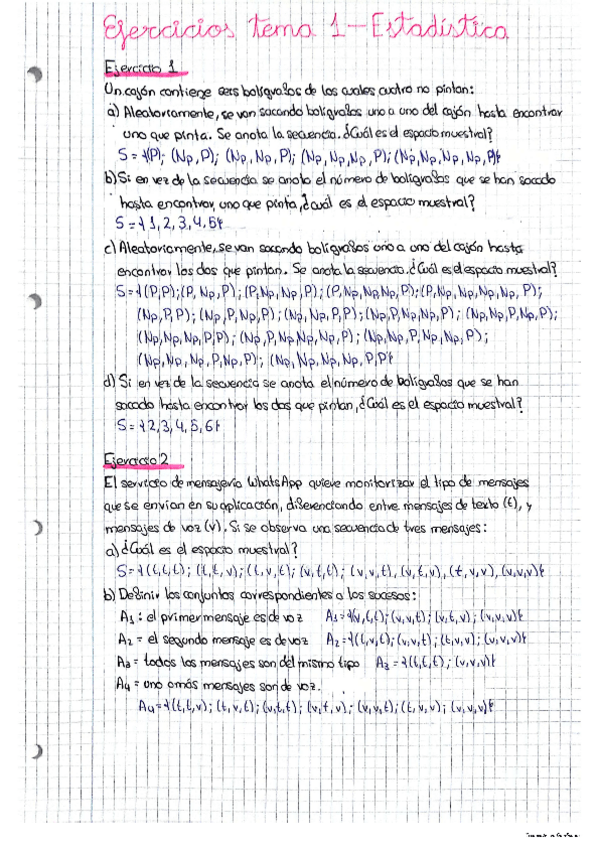 Ejercicios tema 1-Estadística
Ejercicio 1
Un cajón contiene seis bolígrafos de los cuales cuatro no pintan:
a) Aleatoriamente, se van sacando bolígrafos uno a uno del cajón hasta encontrar
uno que pinta. Se anota la secuencia. ¿Cuál es el espacio muestral?
S = {(P); (Np, P); (Np, Np, P); (Np, Np, Np, P); (Np, Np, Np, Np, P)}
b) Si en vez de la secuencia se anota el número de bolígrafos que se han sacado
hasta encontrar uno que pinta, ¿cuál es el espacio muestral?
S = {1, 2, 3, 4, 5}
c) Aleatoriamente, se van sacando bolígrafos uno a uno del cajón hasta
encontrar los dos que pintan. Se anota la secuencia. ¿Cuál es el espacio muestral?
S = {(P, P); (P, Np, P); (P, Np, Np, P); (P, Np, Np, Np, P); (P, Np, Np, Np, Np, P);
(Np, P, P); (Np, P, Np, P); (Np, Np, P, P); (Np, P, Np, Np, P); (Np, Np, P, Np, P);
(Np, Np, Np, P, P); (Np, P, Np, Np, Np, P); (Np, Np, P, Np, Np, P);
(Np, Np, Np, P, Np, P); (Np, Np, Np, Np, P, P)}
d) Si en vez de la secuencia se anota el número de bolígrafos que se han
sacado hasta encontrar los dos que pintan, ¿Cuál es el espacio muestral?
S = {2, 3, 4, 5, 6}
Ejercicio 2
El servicio de mensajería WhatsApp quiere monitorizar el tipo de mensajes
que se envían en su aplicación, diferenciando entre mensajes de texto (t), y
mensajes de voz (v). Si se observa una secuencia de tres mensajes:
a) ¿Cuál es el espacio muestral?
S = {(t, t, t); (t, t, v); (t, v, t); (v, t, t); (v, v, t), (v, t, v), (t, v, v), (v, v, v)}
b) Definir los conjuntos correspondientes a los sucesos:
A1: el primer mensaje es de voz A1 = {(v, t, t); (v, v, t); (v, t, v); (v, v, v)}
A2 = el segundo mensaje es de voz A2 = {(t, v, t); (v, v, t); (t, v, v); (v, v, v)}
A3 = todos los mensajes son del mismo tipo A3 = {(t, t, t); (v, v, v)}
A4 = uno o más mensajes son de voz.
A4 = {(t, t, v); (t, v, t); (v, t, t); (v, t, v); (v, v, t); (t, v, v); (v, v, v)}